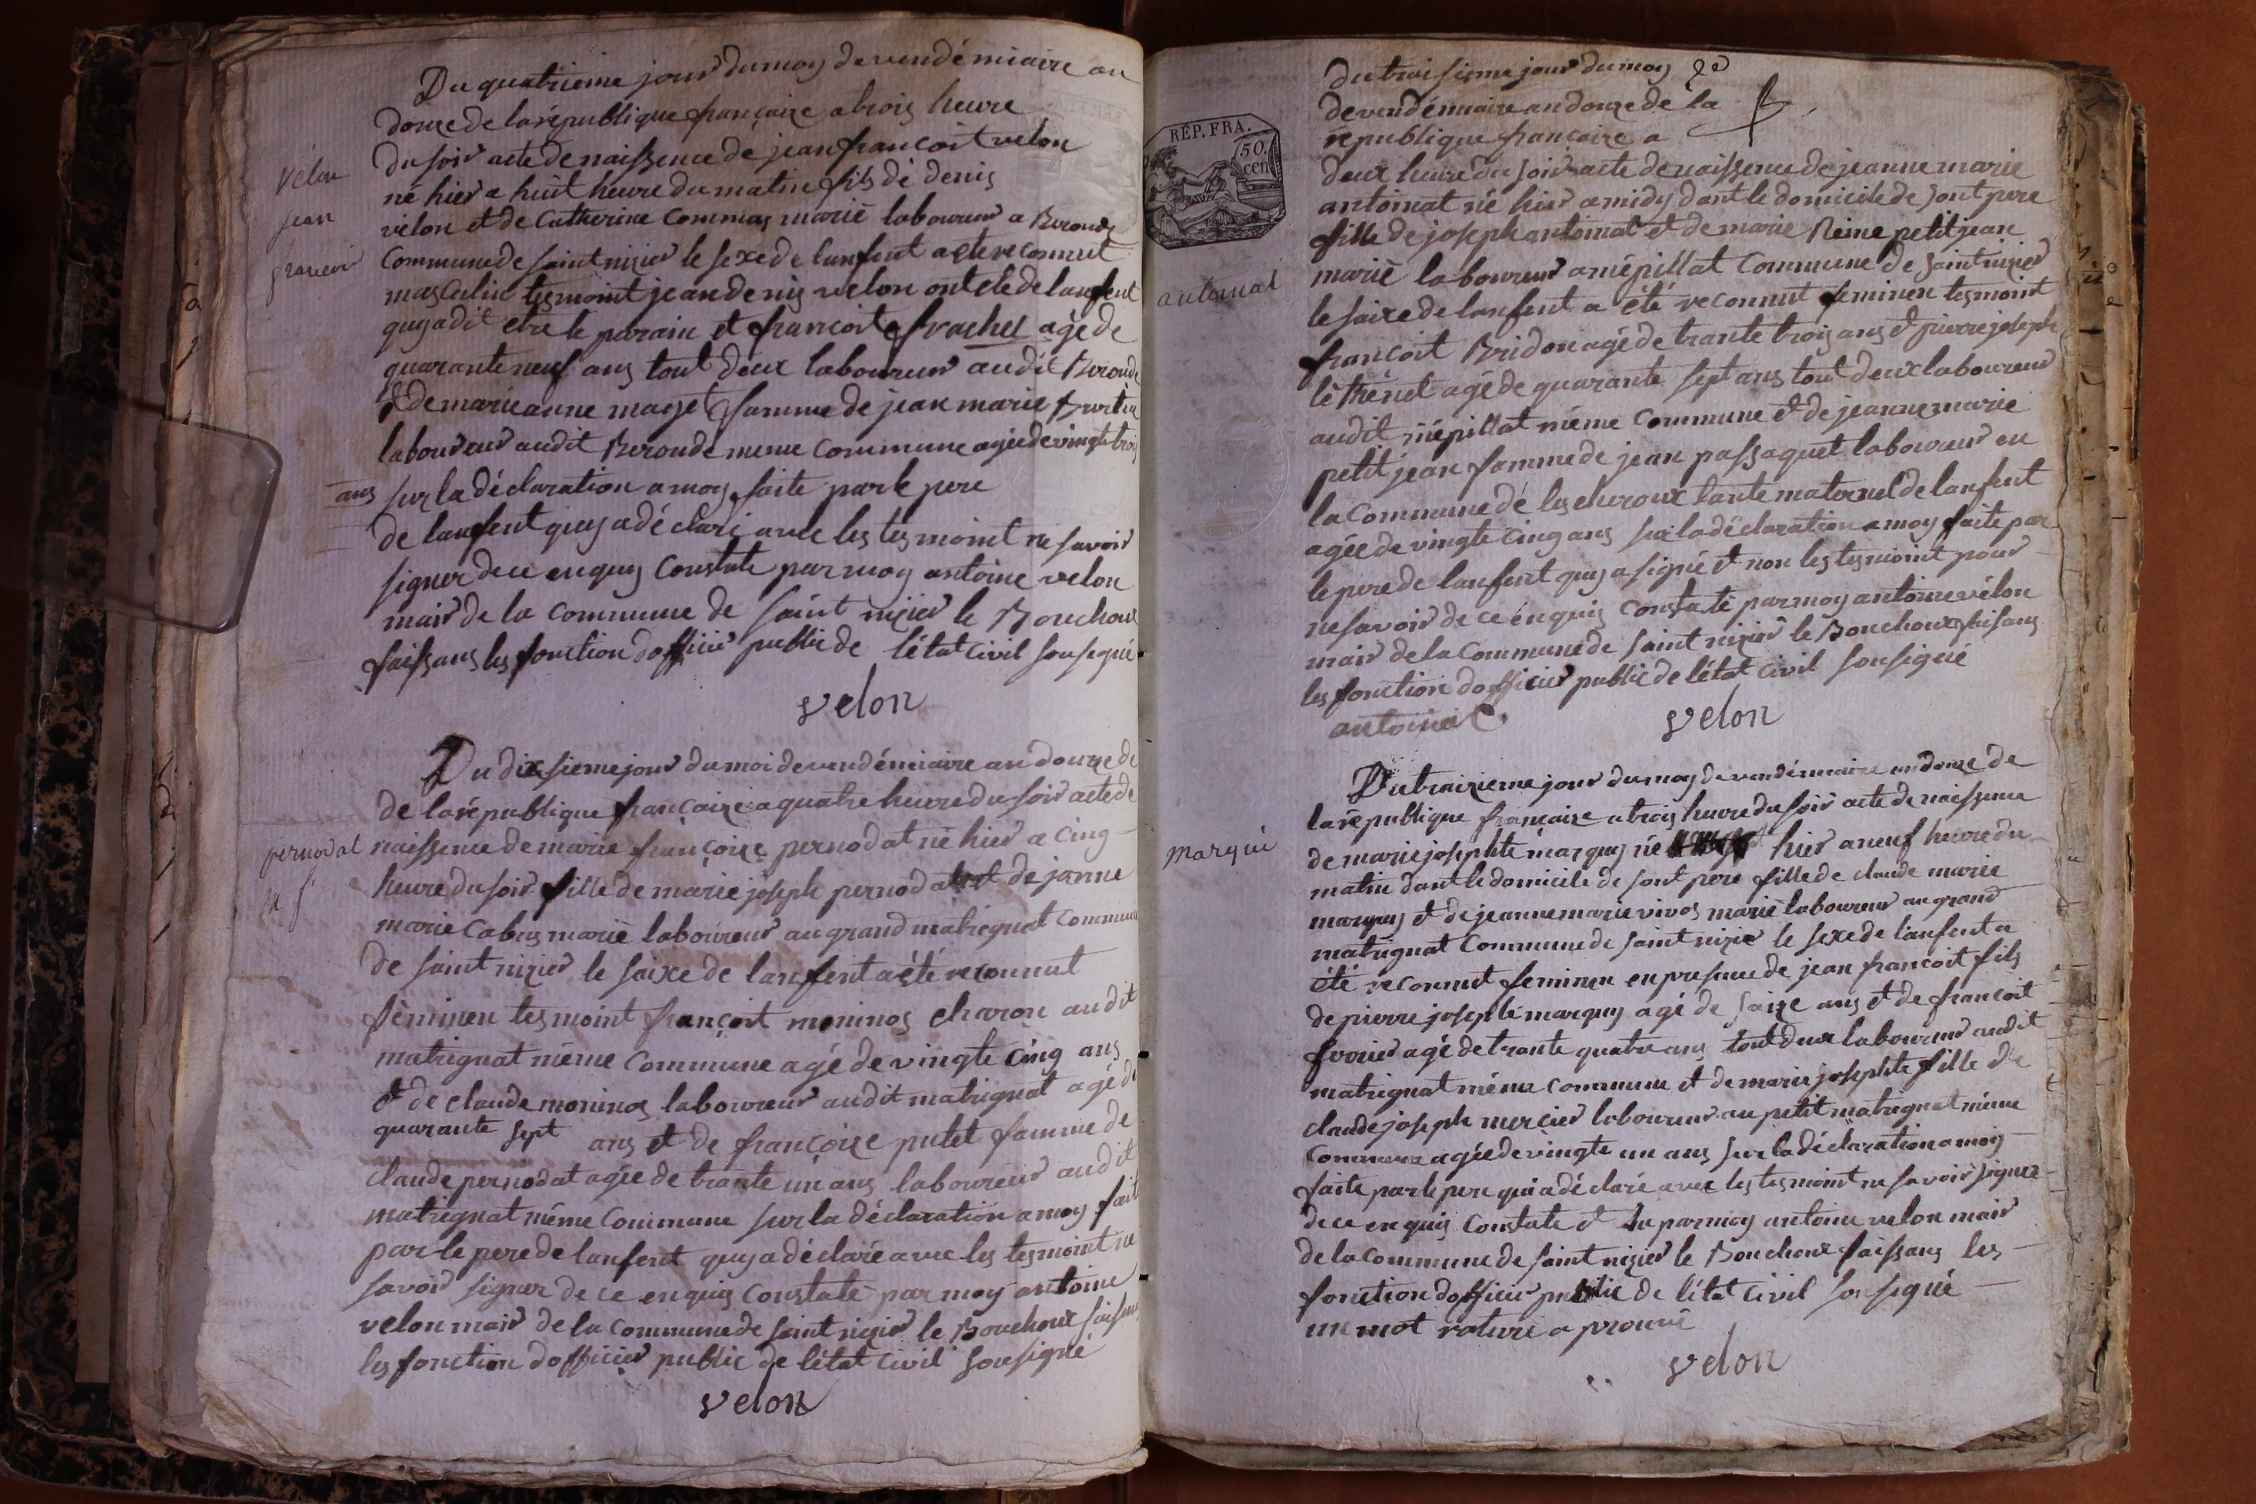 Du quatrieme jour du moy de vendémiaire an
douze de la république française a trois heure
du soir acte de naissence de jean francoit velon
né hier a huit heure du matin fils de denis
velon et de Catherine Commas marié laboureur a Beronde
Commune de saint nizier le sexe de lanfent a été reconnut
masculin tesmoint jean denis velon oncle de lanfent
quy a dit etre le parain et francoit frachet agé de
quarante neuf ans tout deux laboureur audit Beronde
& de marie anne maget famme de jean marie
laboureur audit Beronde meme Commune agée de vingte trois
ans sur la déclaration a moy faite par le pere
de lanfent quy a déclaré avec les tesmoint ne savoir
signer de ce enquis Constaté par moy antoine velon
mair de la commune de saint nizier le Bouchoux
faissans les fonction dofficier public de létat Civil sousigné
velon
vélon
jean
francoit
Du dixsieme jour du moi de vendémiaire an douze de
de la république française a quatre heure du soir acte de
naissence de marie françoise pernodat né hier a cinq
heure du soir fille de marie joseph pernodat et de janne
marie Cabus marié laboureur au grand matrignat Commune
de saint nizier le saixe de lanfent a été reconnut
féminen tesmoint françoit moninos charon audit
matrignat méme Commune agé de vingte cinq ans
& de claude moninos laboureur audit matrignat agé de
quarante sept ans et de françoise putet famme de
claude pernodat agée de trante un ans laboureur audit
matrignat méme Commune sur la déclaration a moy fait
par le pere de lanfent quy a déclaré avec les tesmoint ne
savoir signer de ce enquis Constaté par moy antoine
velon mair de la commune de saint nizier le Bouchoux faisans
les fonction dofficier public de létat Civil sousigné
velon
pernodat
m f
du troisieme jour du moy
de vendémiaire an douze de la
republique francaize a
deux heure du soir acte de naissence de jeanne marie
antoinat né hier a midy dant le domicile de sont pere
fille de joseph antoinat et de marie Reine petitjean
marié laboureur a mépillat Commune de saint nizier
le saixe de lanfent a été reconnut feminen tesmoint
françoit Bridon agé de trante trois ans & pierre joseph
agé de quarante sept ans tout deux laboureur
audit mépillat méme Commune & de jeanne marie
petit jean famme de jean passaquet laboureur en
la Commune de lescheroux tante maternel de lanfent
agée de vingte cinq ans sur la déclaration a moy faite par
le pere de lanfent quy a signé & non les tesmoint pour
ne savoir de ce énquis Constaté par moy antoine vélon
mair de la Commune de saint nizier le Bouchoux faisans
les fonction dofficier public de létat Civil sousigné
velon
RÉP. FRA.
50.
cen
antoinat
Du traizieme jour du moy de vendémiaire an douze de
la république francaize a trois heure du soir acte de naissence
de marie josephte marquis né hier a neuf heure du
matin dant le domicile de sont pere fille de claude marie
marquis & de jeanne marie vivos marié laboureur au grand
matrignat Commune de saint nizier le sexe de lanfent a
été reconnut feminen en presence de jean francoit fils
de pierre joseph marquis agé de saize ans et de francoit
agé de trante quatre ans tout deux laboureur audit
matrignat méme commune et de marie josephte fille de
claude joseph mercier laboureur au petit matrignat méme
Commune agée de vingte un ans sur la déclaration a moy
faite par le pere qui a déclaré avec les tesmoint ne savoir signer
de ce enquis Constaté & lu par moy antoine velon mair
de la commune de saint nizier le Bouchoux faissans les
fonction dofficier public de létat Civil sousigné
un mot raturé aprouvé
velon
marqui